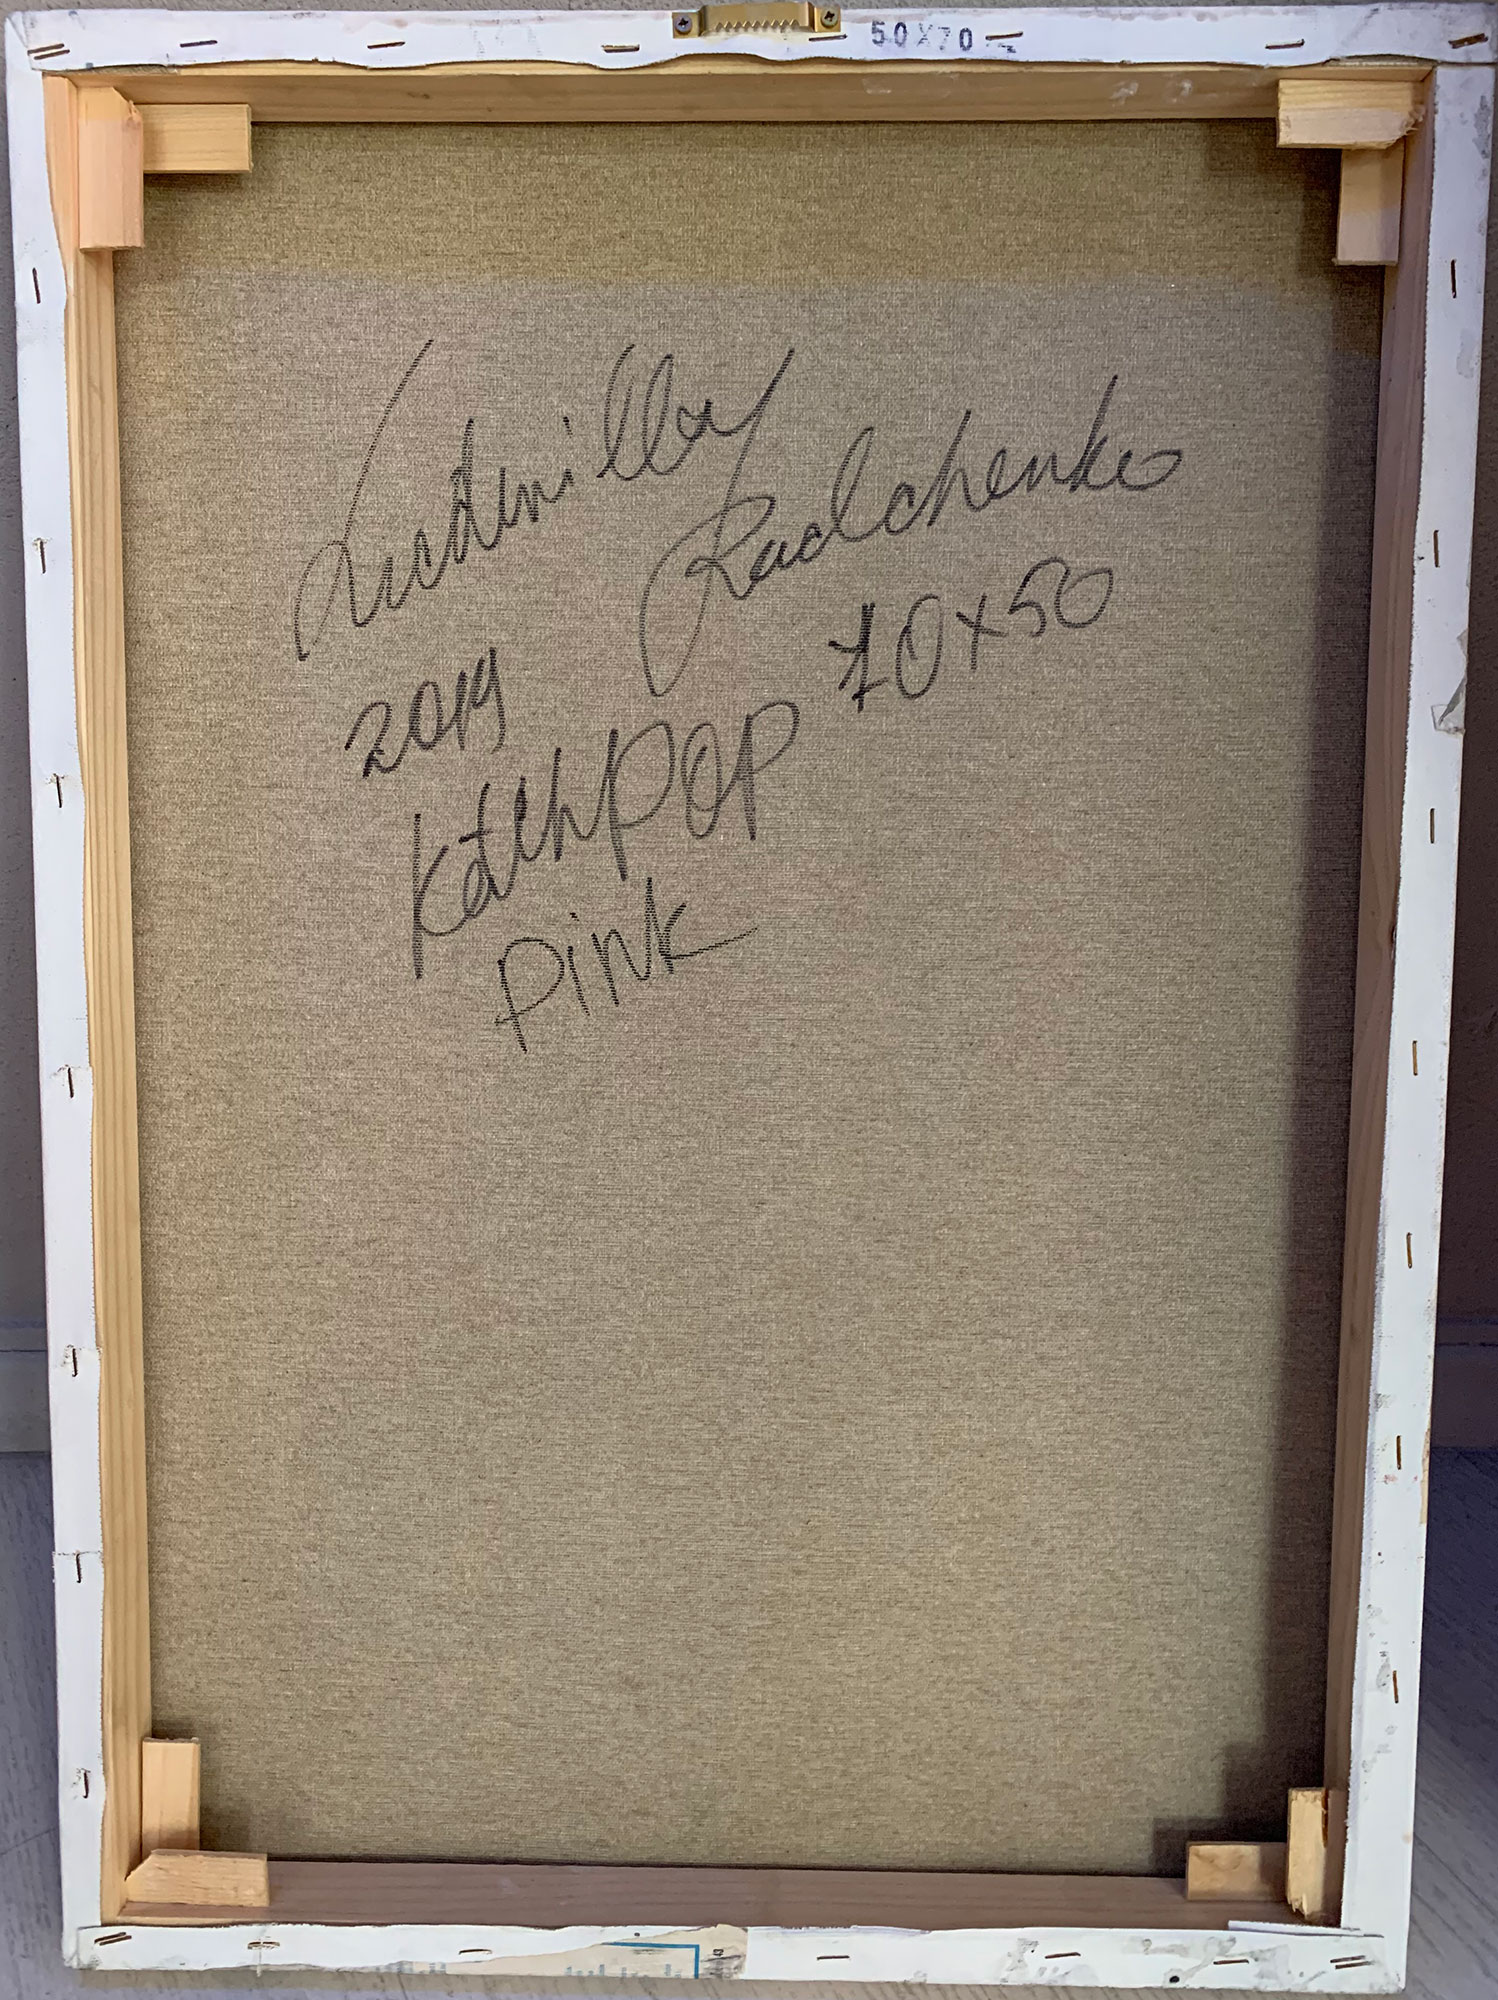 50X70
Ludmilla
Radchenko
2019
70x50
KetchPOP
Pink